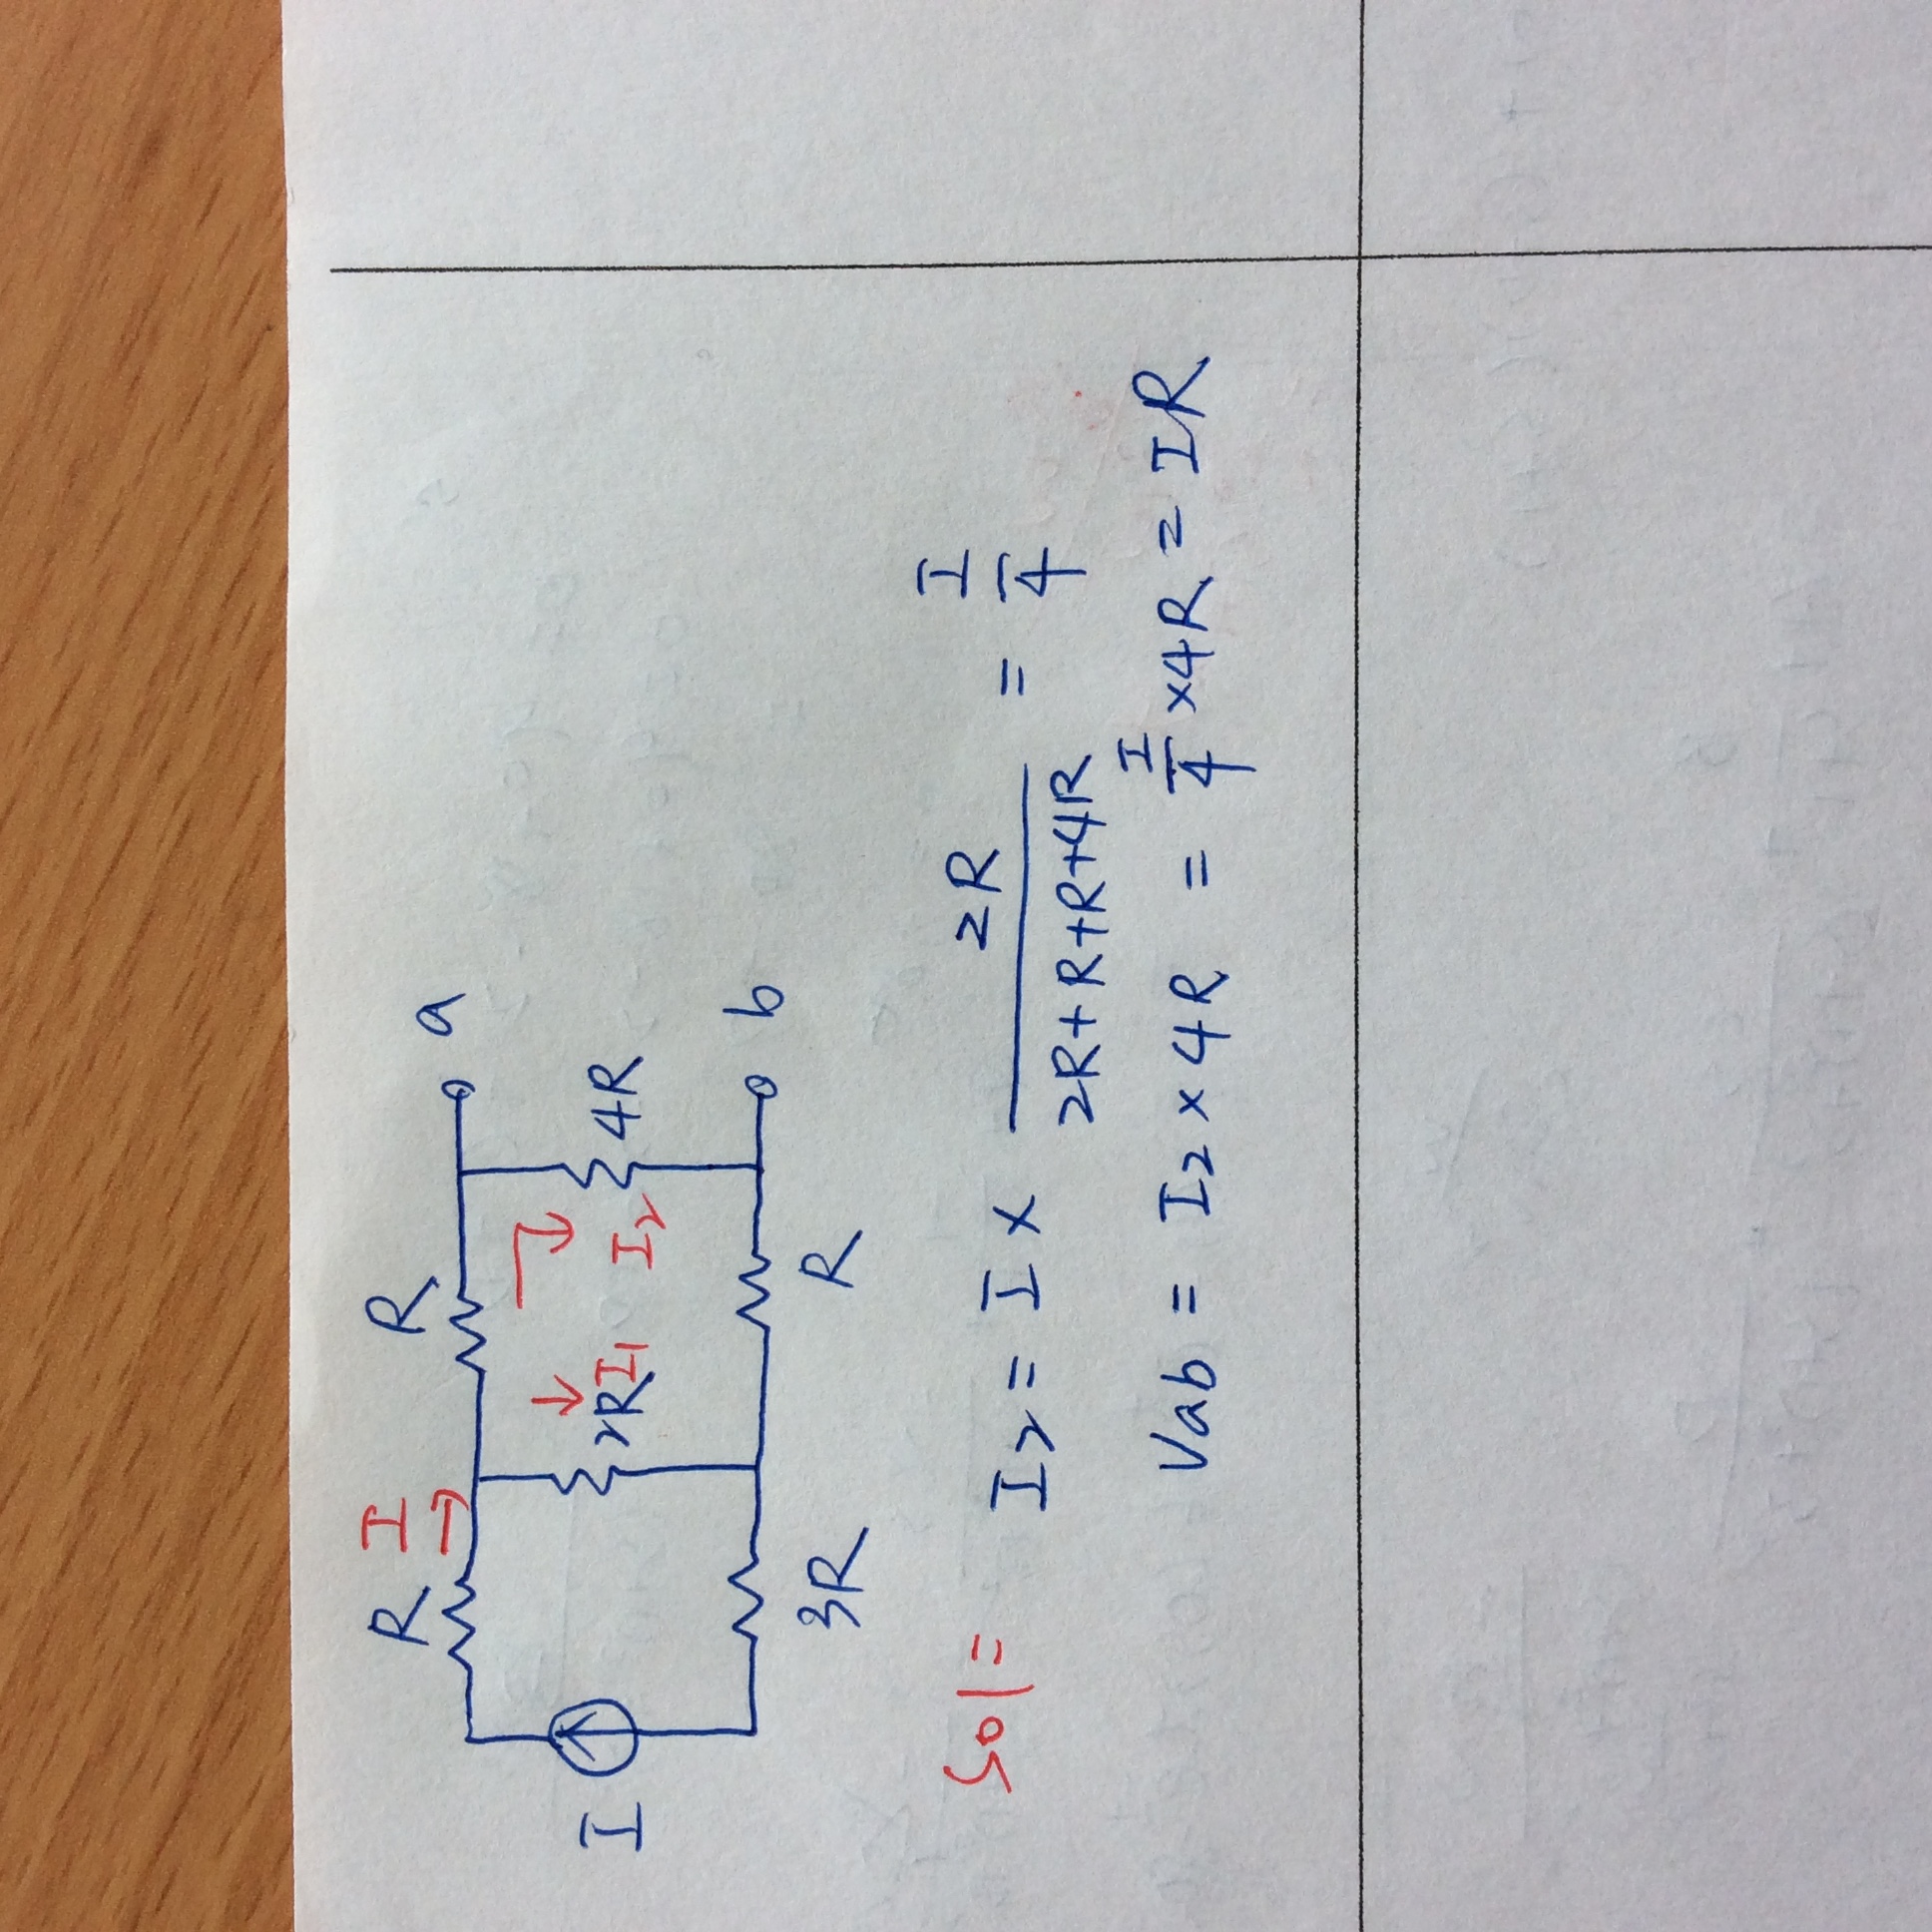 R I R a
I 2R I1 I2 4R
3R R b
Sol=
I2 = I × 2R / 2R+R+R+4R = I/4
Vab = I2 × 4R = I/4 ×4R = IR